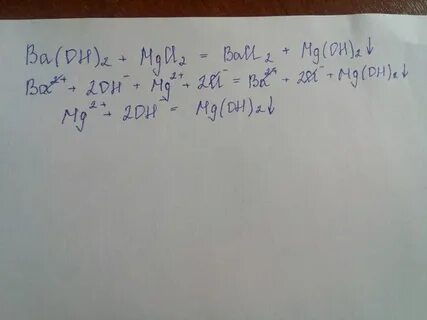 Ba(OH)₂ + MgCl₂ = BaCl₂ + Mg(OH)₂↓
Ba²⁺ + 2OH⁻ + Mg²⁺ + 2Cl⁻ = Ba²⁺ + 2Cl⁻ + Mg(OH)₂↓
Mg²⁺ + 2OH⁻ = Mg(OH)₂↓